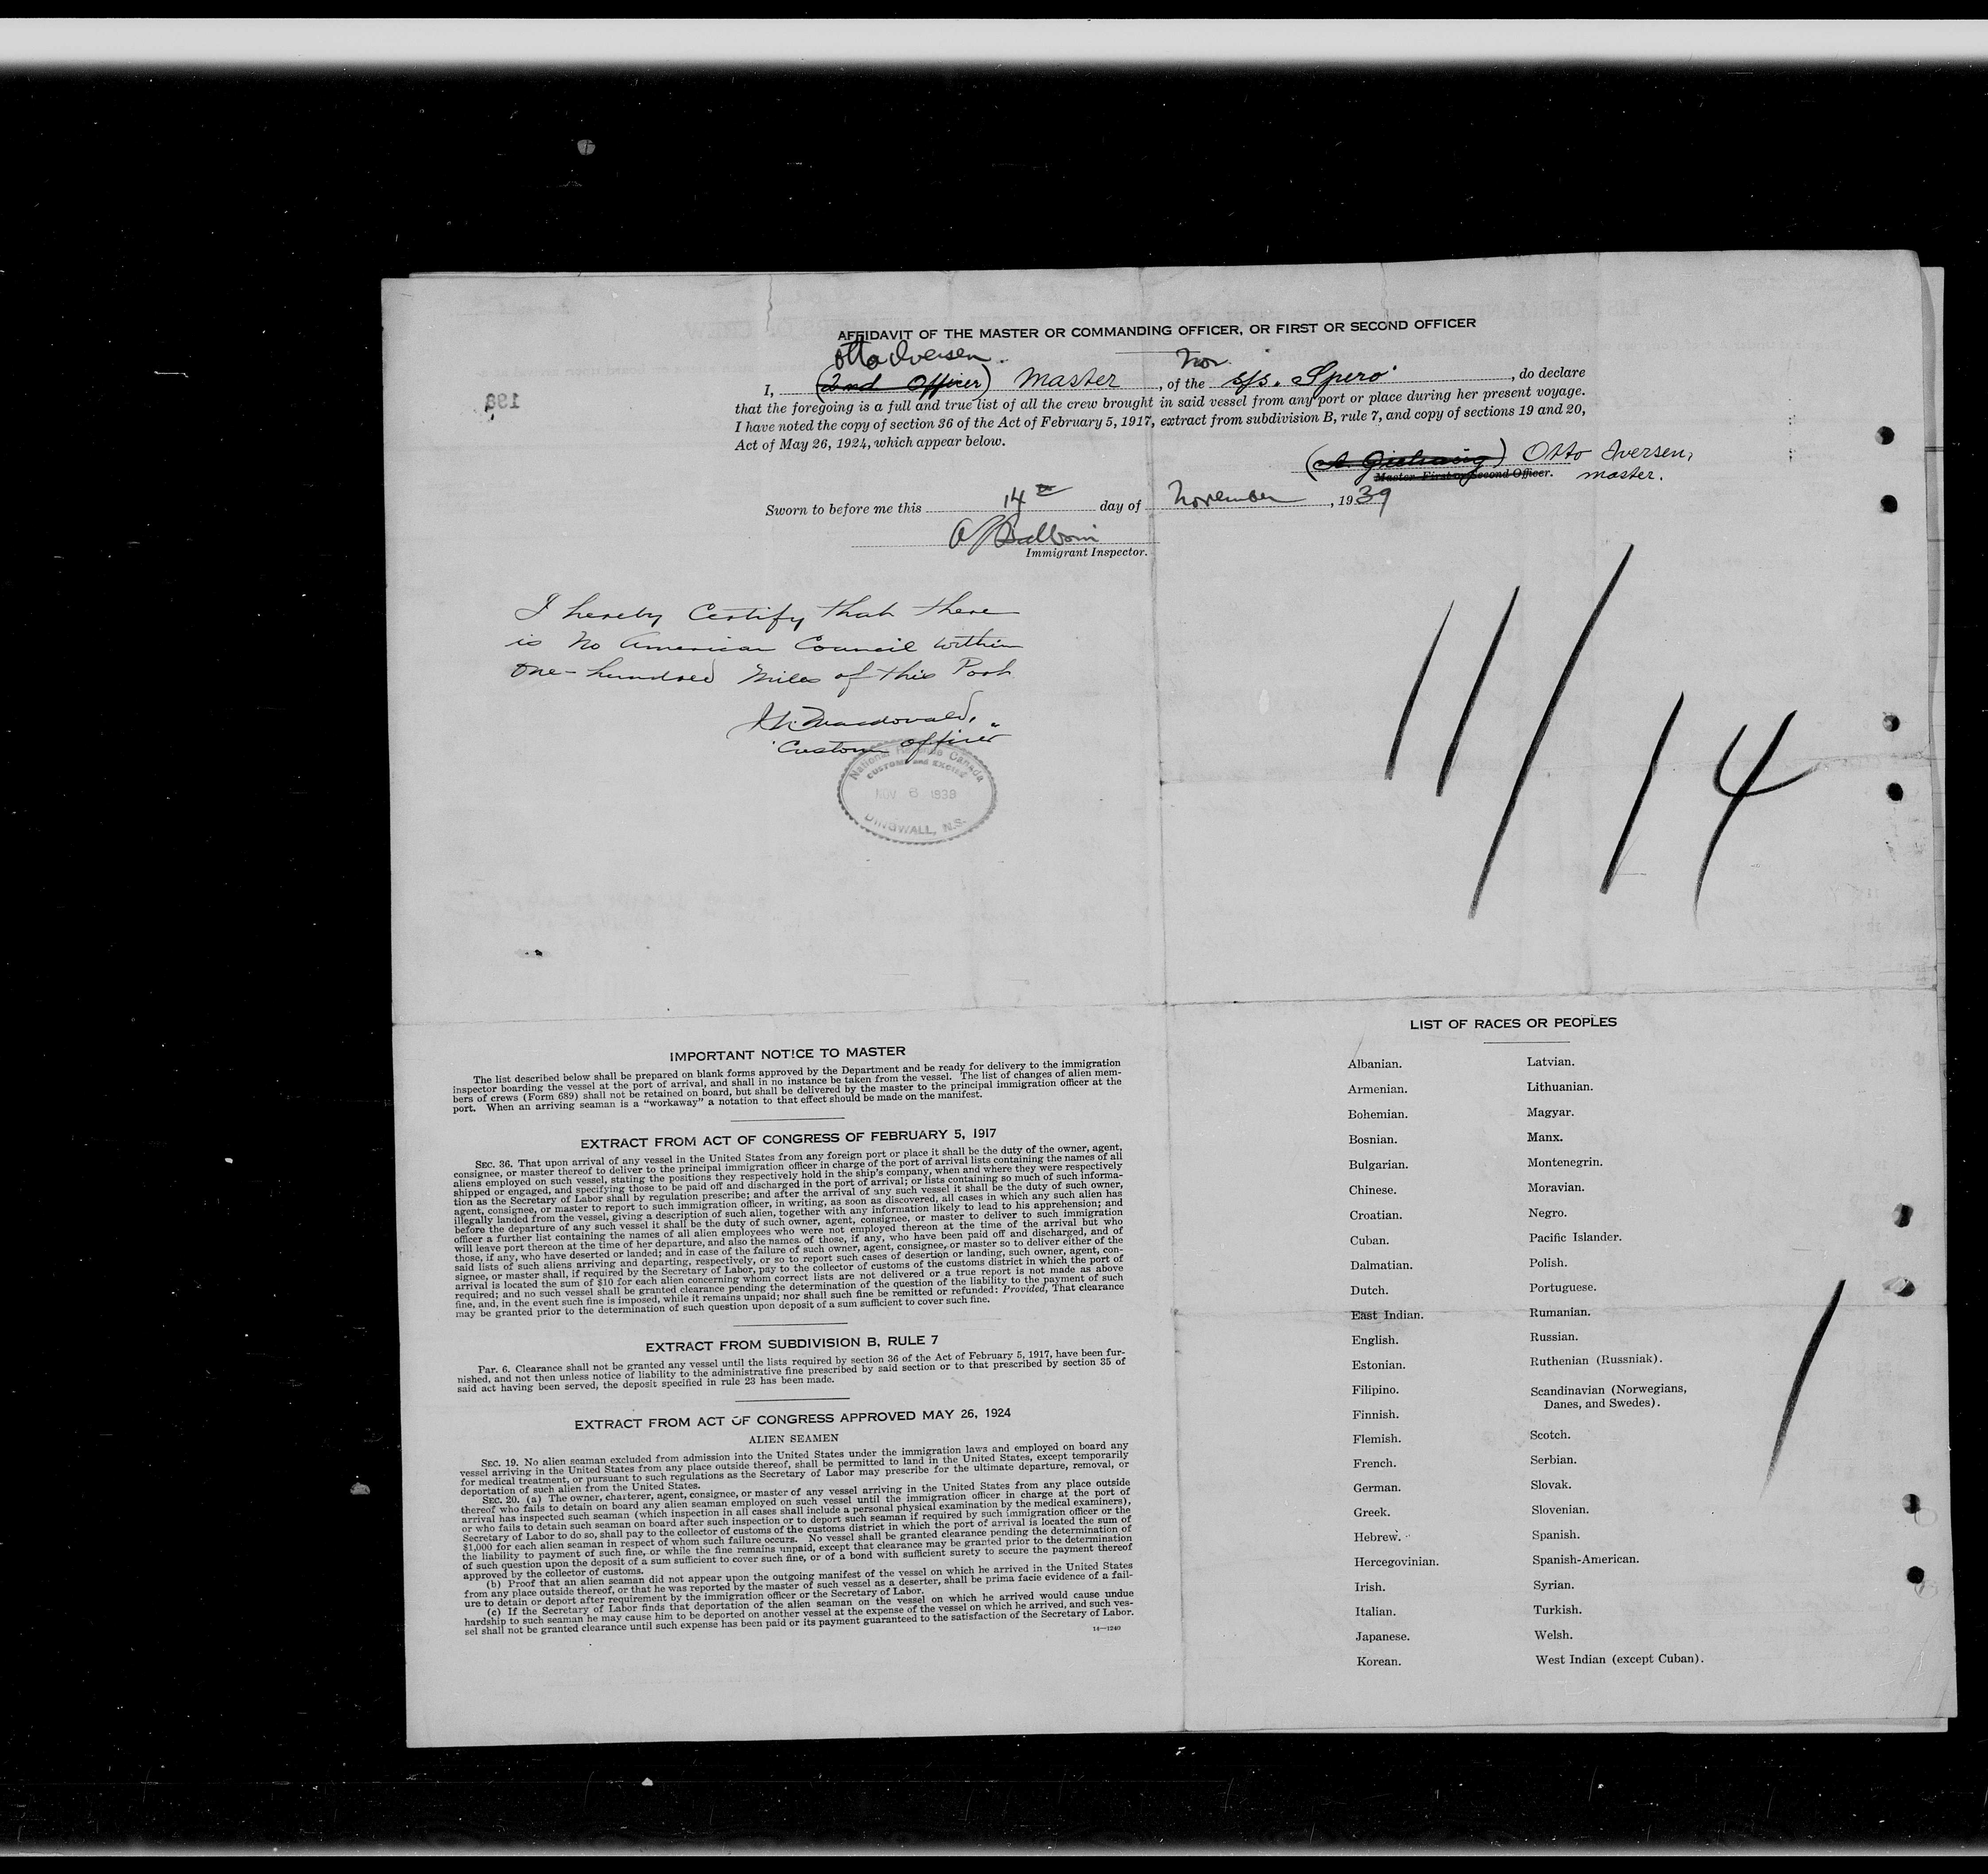 AFFIDAVIT OF THE MASTER OR COMMANDING OFFICER, OR FIRST OR SECOND OFFICER
Otto Iversen. Nor.
I, (2nd Officer) Master, of the s/s. Spero, do declare
that the foregoing is a full and true list of all the crew brought in said vessel from any port or place during her present voyage.
I have noted the copy of section 36 of the Act of February 5, 1917, extract from subdivision B, rule 7, and copy of sections 19 and 20,
Act of May 26, 1924, which appear below.
Otto Iversen,
Master First or Second Officer. master.
Sworn to before me this 14th day of November, 1939
Immigrant Inspector.
198
I hereby Certify that there
is no American Council within
one-hundred Miles of this Port
Macdonald,
Customs officer
National Revenue Canada
CUSTOMS and EXCISE
NOV 6 1939
DINGWALL, N.S.
11/14
IMPORTANT NOTICE TO MASTER
The list described below shall be prepared on blank forms approved by the Department and be ready for delivery to the immigration
inspector boarding the vessel at the port of arrival, and shall in no instance be taken from the vessel. The list of changes of alien mem-
bers of crews (Form 689) shall not be retained on board, but shall be delivered by the master to the principal immigration officer at the
port. When an arriving seaman is a "workaway" a notation to that effect should be made on the manifest.
EXTRACT FROM ACT OF CONGRESS OF FEBRUARY 5, 1917
SEC. 36. That upon arrival of any vessel in the United States from any foreign port or place it shall be the duty of the owner, agent,
consignee, or master thereof to deliver to the principal immigration officer in charge of the port of arrival lists containing the names of all
aliens employed on such vessel, stating the positions they respectively hold in the ship's company, when and where they were respectively
shipped or engaged, and specifying those to be paid off and discharged in the port of arrival; or lists containing so much of such informa-
tion as the Secretary of Labor shall by regulation prescribe; and after the arrival of any such vessel it shall be the duty of such owner,
agent, consignee, or master to report to such immigration officer, in writing, as soon as discovered, all cases in which any such alien has
illegally landed from the vessel, giving a description of such alien, together with any information likely to lead to his apprehension; and
before the departure of any such vessel it shall be the duty of such owner, agent, consignee, or master to deliver to such immigration
officer a further list containing the names of all alien employees who were not employed thereon at the time of the arrival but who
will leave port thereon at the time of her departure, and also the names of those, if any, who have been paid off and discharged, and of
those, if any, who have deserted or landed; and in case of the failure of such owner, agent, consignee, or master so to deliver either of the
said lists of such aliens arriving and departing, respectively, or so to report such cases of desertion or landing, such owner, agent, con-
signee, or master shall, if required by the Secretary of Labor, pay to the collector of customs of the customs district in which the port of
arrival is located the sum of $10 for each alien concerning whom correct lists are not delivered or a true report is not made as above
required; and no such vessel shall be granted clearance pending the determination of the question of the liability to the payment of such
fine, and, in the event such fine is imposed, while it remains unpaid; nor shall such fine be remitted or refunded: Provided, That clearance
may be granted prior to the determination of such question upon deposit of a sum sufficient to cover such fine.
EXTRACT FROM SUBDIVISION B, RULE 7
Par. 6. Clearance shall not be granted any vessel until the lists required by section 36 of the Act of February 5, 1917, have been fur-
nished, and not then unless notice of liability to the administrative fine prescribed by said section or to that prescribed by section 35 of
said act having been served, the deposit specified in rule 23 has been made.
EXTRACT FROM ACT OF CONGRESS APPROVED MAY 26, 1924
ALIEN SEAMEN
SEC. 19. No alien seaman excluded from admission into the United States under the immigration laws and employed on board any
vessel arriving in the United States from any place outside thereof, shall be permitted to land in the United States, except temporarily
for medical treatment, or pursuant to such regulations as the Secretary of Labor may prescribe for the ultimate departure, removal, or
deportation of such alien from the United States.
SEC. 20. (a) The owner, charterer, agent, consignee, or master of any vessel arriving in the United States from any place outside
thereof who fails to detain on board any alien seaman employed on such vessel until the immigration officer in charge at the port of
arrival has inspected such seaman (which inspection in all cases shall include a personal physical examination by the medical examiners),
or who fails to detain such seaman on board after such inspection or to deport such seaman if required by such immigration officer or the
Secretary of Labor to do so, shall pay to the collector of customs of the customs district in which the port of arrival is located the sum of
$1,000 for each alien seaman in respect of whom such failure occurs. No vessel shall be granted clearance pending the determination of
the liability to payment of such fine, or while the fine remains unpaid, except that clearance may be granted prior to the determination
of such question upon the deposit of a sum sufficient to cover such fine, or of a bond with sufficient surety to secure the payment thereof
approved by the collector of customs.
(b) Proof that an alien seaman did not appear upon the outgoing manifest of the vessel on which he arrived in the United States
from any place outside thereof, or that he was reported by the master of such vessel as a deserter, shall be prima facie evidence of a fail-
ure to detain or deport after requirement by the immigration officer or the Secretary of Labor.
(c) If the Secretary of Labor finds that deportation of the alien seaman on the vessel on which he arrived would cause undue
hardship to such seaman he may cause him to be deported on another vessel at the expense of the vessel on which he arrived, and such ves-
sel shall not be granted clearance until such expense has been paid or its payment guaranteed to the satisfaction of the Secretary of Labor.
14—1240
LIST OF RACES OR PEOPLES
Albanian.
Armenian.
Bohemian.
Bosnian.
Bulgarian.
Chinese.
Croatian.
Cuban.
Dalmatian.
Dutch.
East Indian.
English.
Estonian.
Filipino.
Finnish.
Flemish.
French.
German.
Greek.
Hebrew.
Hercegovinian.
Irish.
Italian.
Japanese.
Korean.
Latvian.
Lithuanian.
Magyar.
Manx.
Montenegrin.
Moravian.
Negro.
Pacific Islander.
Polish.
Portuguese.
Rumanian.
Russian.
Ruthenian (Russniak).
Scandinavian (Norwegians,
Danes, and Swedes).
Scotch.
Serbian.
Slovak.
Slovenian.
Spanish.
Spanish-American.
Syrian.
Turkish.
Welsh.
West Indian (except Cuban).